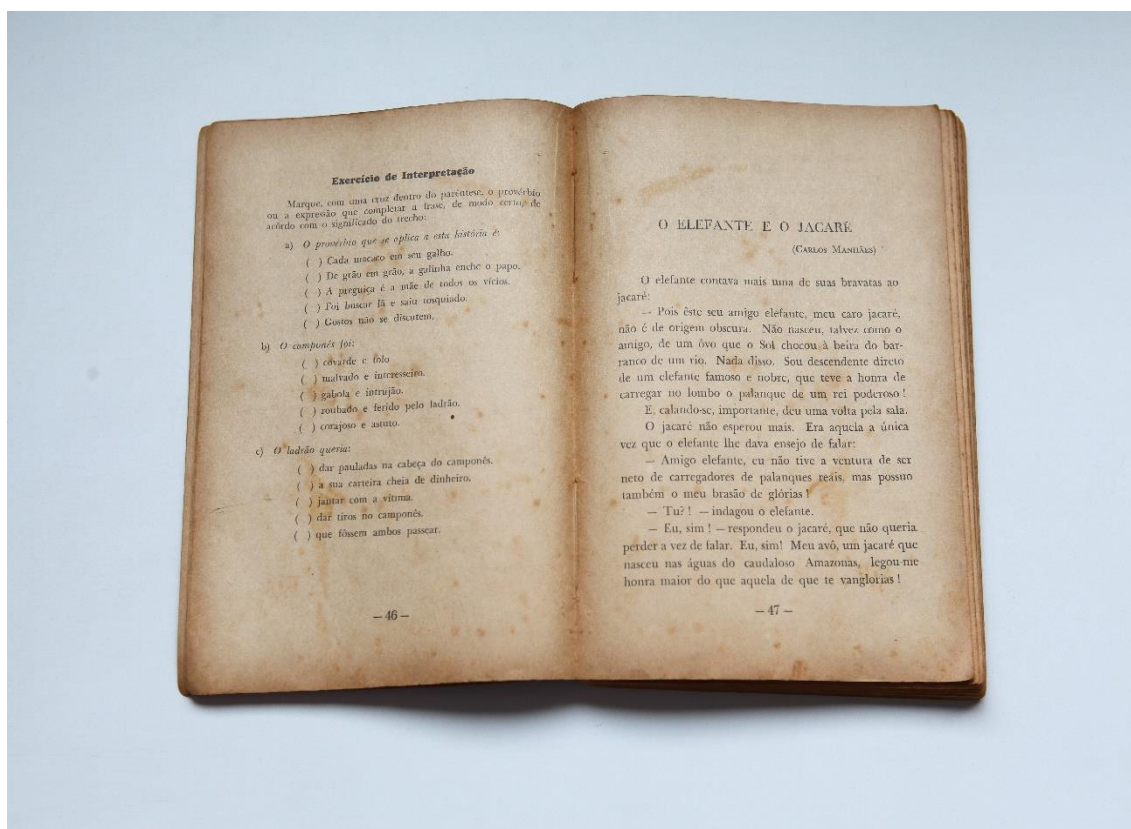 Exercício de Interpretação
Marque, com uma cruz dentro do parêntese, o provérbio
ou a expressão que completar a frase, de modo certo, de
acôrdo com o significado do trecho:
a) O provérbio que se aplica a esta história é:
( ) Cada macaco em seu galho.
( ) De grão em grão, a galinha enche o papo.
( ) A preguiça é a mãe de todos os vícios.
( ) Foi buscar lã e saiu tosquiado.
( ) Gostos não se discutem.
b) O camponês foi:
( ) covarde e tolo
( ) malvado e interesseiro.
( ) gabola e intrujão.
( ) roubado e ferido pelo ladrão.
( ) corajoso e astuto.
c) O ladrão queria:
( ) dar pauladas na cabeça do camponês.
( ) a sua carteira cheia de dinheiro.
( ) jantar com a vítima.
( ) dar tiros no camponês.
( ) que fôssem ambos passear.
— 46 —
O ELEFANTE E O JACARÉ
(CARLOS MANHÃES)
O elefante contava mais uma de suas bravatas ao
jacaré:
— Pois êste seu amigo elefante, meu caro jacaré,
não é de origem obscura. Não nasceu, talvez como o
amigo, de um ôvo que o Sol chocou à beira do bar-
ranco de um rio. Nada disso. Sou descendente direto
de um elefante famoso e nobre, que teve a honra de
carregar no lombo o palanque de um rei poderoso !
E, calando-se, importante, deu uma volta pela sala.
O jacaré não esperou mais. Era aquela a única
vez que o elefante lhe dava ensejo de falar:
— Amigo elefante, eu não tive a ventura de ser
neto de carregadores de palanques reais, mas possuo
também o meu brasão de glórias !
— Tu? ! — indagou o elefante.
— Eu, sim ! — respondeu o jacaré, que não queria
perder a vez de falar. Eu, sim! Meu avô, um jacaré que
nasceu nas águas do caudaloso Amazonas, legou-me
honra maior do que aquela de que te vanglorias !
— 47 —